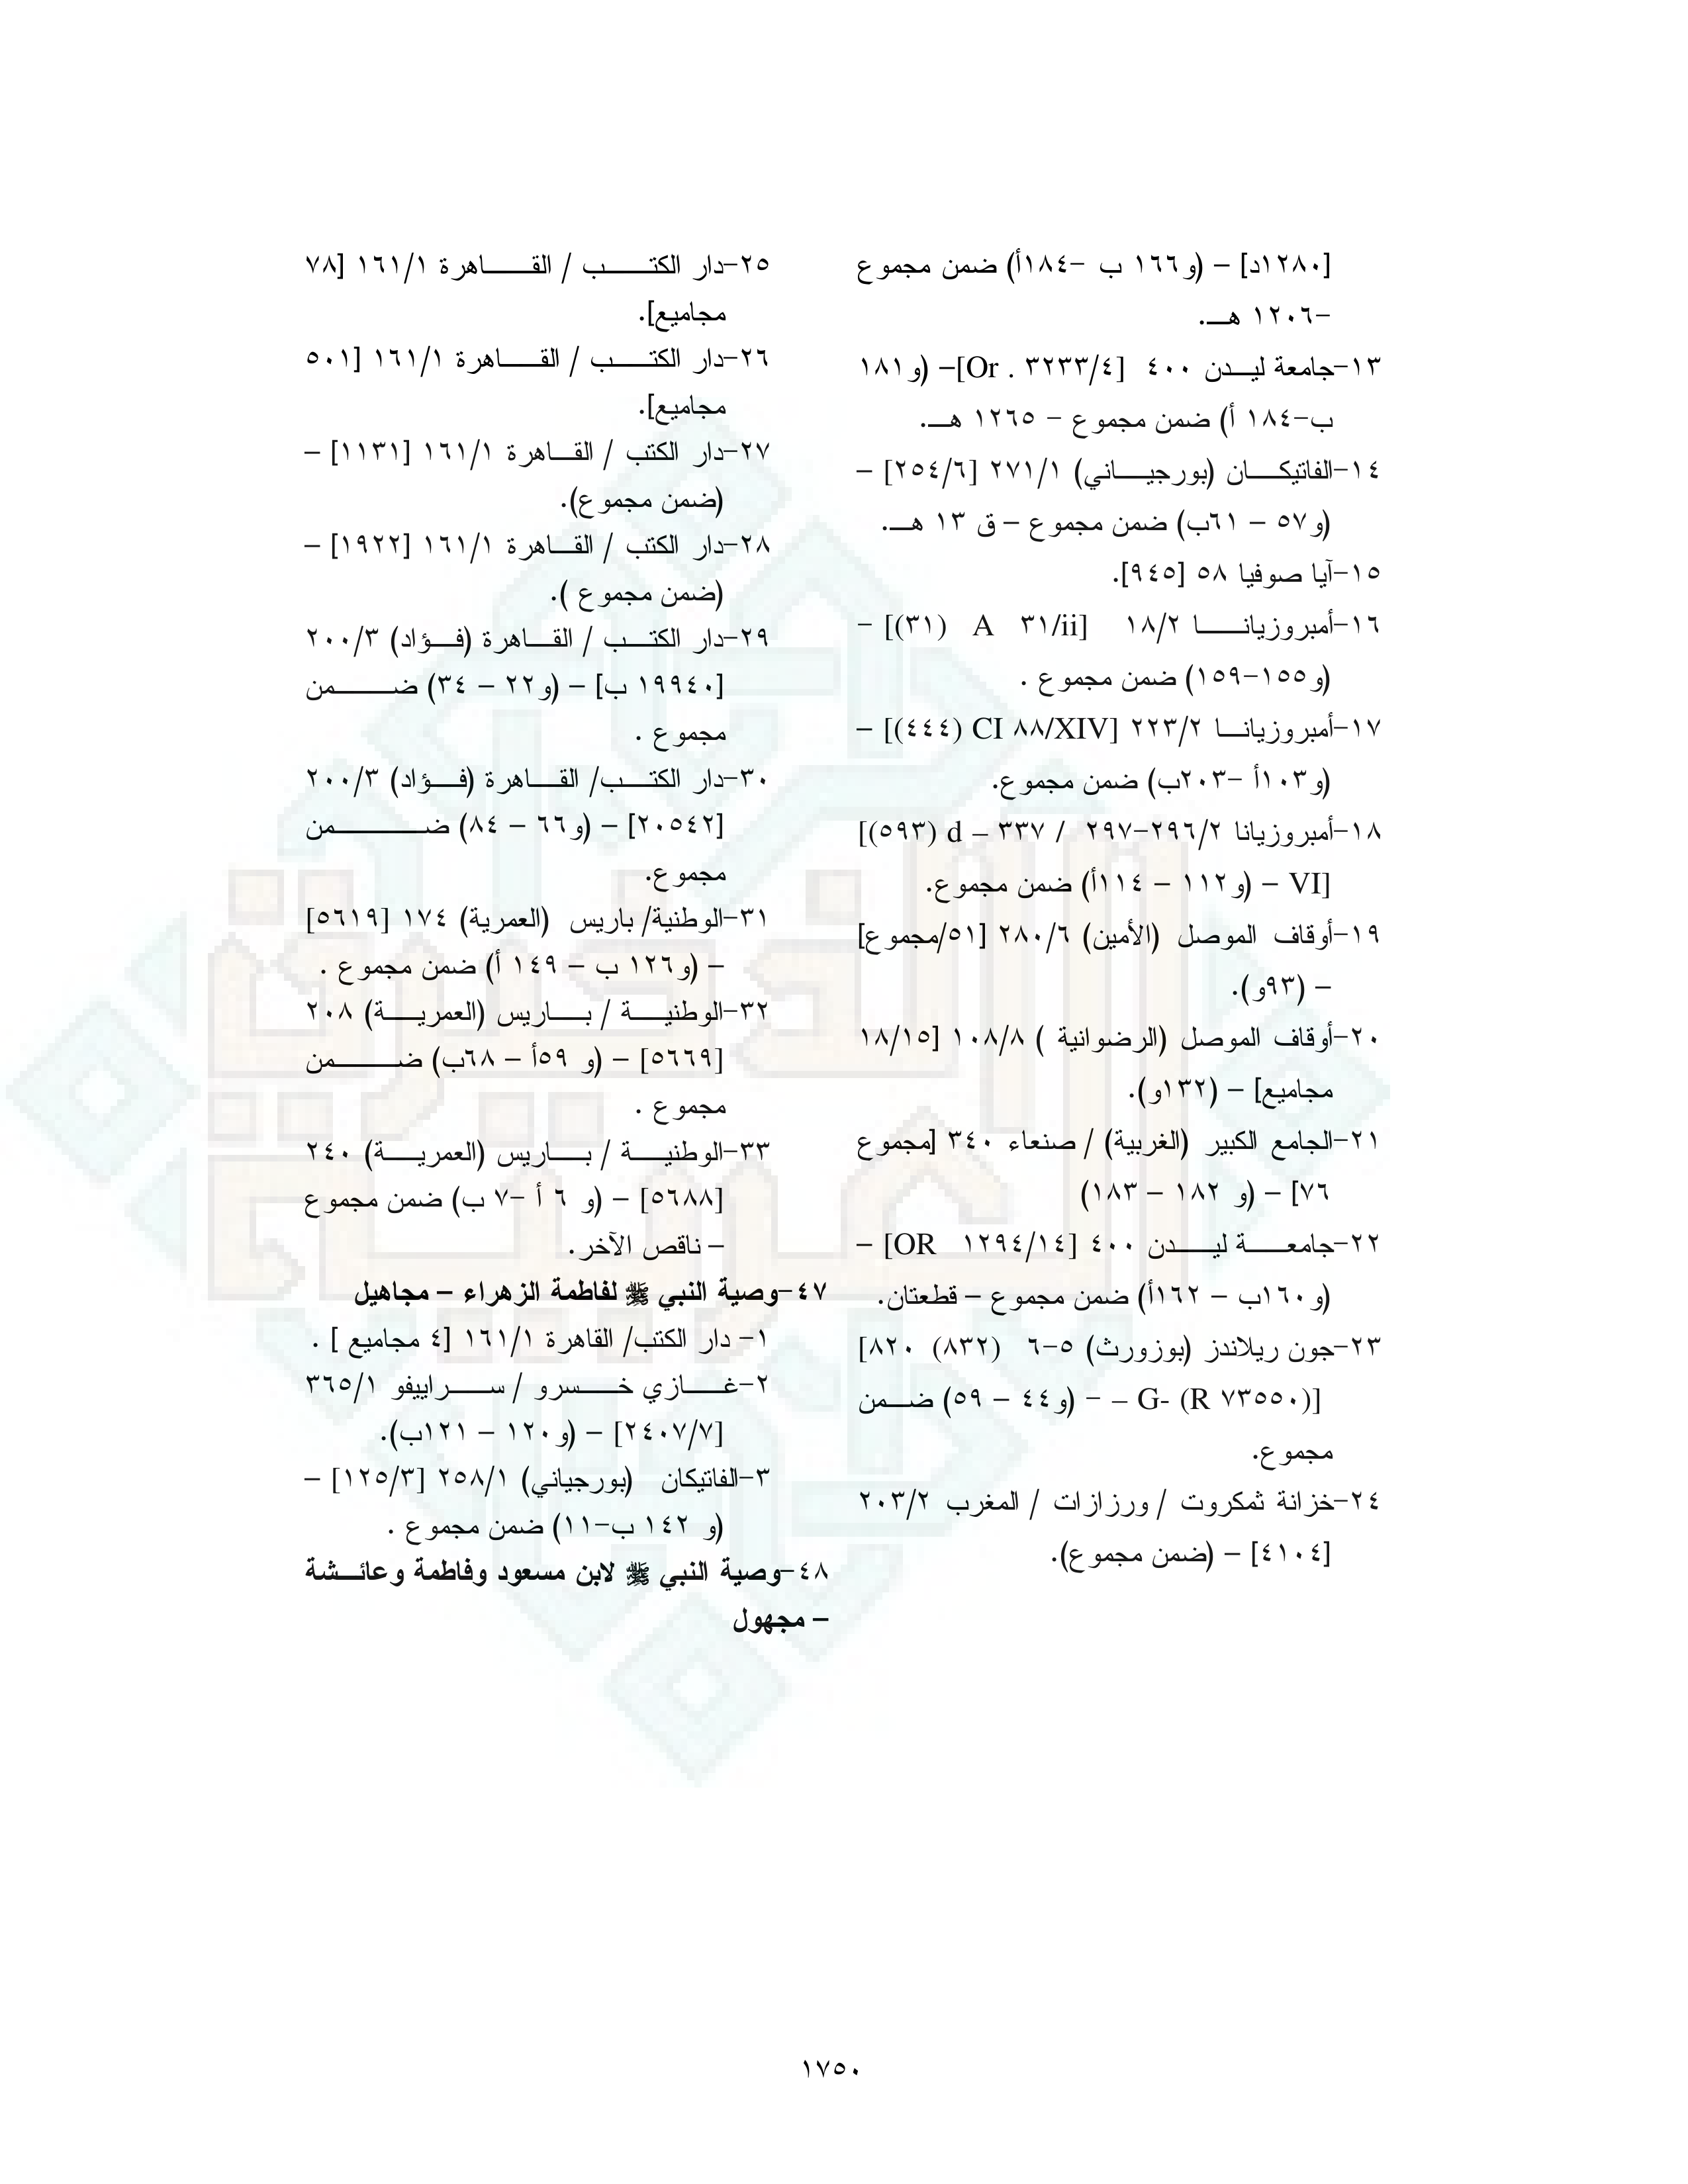 [١٢٨٠د] – (و١٦٦ ب –١٨٤أ) ضمن مجموع
–١٢٠٦ هـ.
١٣–جامعة ليدن ٤٠٠ [Or . ٣٢٣٣/٤]– (و١٨١
ب–١٨٤ أ) ضمن مجموع – ١٢٦٥ هـ.
١٤–الفاتيكان (بورجياني) ٢٧١/١ [٢٥٤/٦] –
(و٥٧ – ٦١ب) ضمن مجموع – ق ١٣ هـ.
١٥–آيا صوفيا ٥٨ [٩٤٥].
١٦–أمبروزيانا ١٨/٢ [(٣١) A ٣١/ii] –
(و١٥٥–١٥٩) ضمن مجموع .
١٧–أمبروزيانا ٢٢٣/٢ [(٤٤٤) CI ٨٨/XIV] –
(و١٠٣أ –٢٠٣ب) ضمن مجموع.
١٨–أمبروزيانا ٢٩٦/٢–٢٩٧ / ٣٣٧ – d (٥٩٣)]
[VI – (و١١٢ – ١١٤أ) ضمن مجموع.
١٩–أوقاف الموصل (الأمين) ٢٨٠/٦ [٥١/مجموع]
– (٩٣و).
٢٠–أوقاف الموصل (الرضوانية ) ١٠٨/٨ [١٨/١٥
مجاميع] – (١٣٢و).
٢١–الجامع الكبير (الغربية) / صنعاء ٣٤٠ [مجموع
٧٦] – (و ١٨٢ – ١٨٣)
٢٢–جامعة ليدن ٤٠٠ [OR ١٢٩٤/١٤] –
(و١٦٠ب – ١٦٢أ) ضمن مجموع – قطعتان.
٢٣–جون ريلاندز (بوزورث) ٥–٦ (٨٣٢) ٨٢٠]
[(٧٣٥٥٠ R) -G – – (و٤٤ – ٥٩) ضمن
مجموع.
٢٤–خزانة ثمكروت / ورزازات / المغرب ٢٠٣/٢
[٤١٠٤] – (ضمن مجموع).
٢٥–دار الكتب / القاهرة ١٦١/١ [٧٨
مجاميع].
٢٦–دار الكتب / القاهرة ١٦١/١ [٥٠١
مجاميع].
٢٧–دار الكتب / القاهرة ١٦١/١ [١١٣١] –
(ضمن مجموع).
٢٨–دار الكتب / القاهرة ١٦١/١ [١٩٢٢] –
(ضمن مجموع ).
٢٩–دار الكتب / القاهرة (فؤاد) ٢٠٠/٣
[١٩٩٤٠ ب] – (و٢٢ – ٣٤) ضمن
مجموع .
٣٠–دار الكتب/ القاهرة (فؤاد) ٢٠٠/٣
[٢٠٥٤٢] – (و٦٦ – ٨٤) ضمن
مجموع.
٣١–الوطنية/ باريس (العمرية) ١٧٤ [٥٦١٩]
– (و١٢٦ ب – ١٤٩ أ) ضمن مجموع .
٣٢–الوطنية / باريس (العمرية) ٢٠٨
[٥٦٦٩] – (و ٥٩أ – ٦٨ب) ضمن
مجموع .
٣٣–الوطنية / باريس (العمرية) ٢٤٠
[٥٦٨٨] – (و ٦ أ –٧ ب) ضمن مجموع
– ناقص الآخر.
٤٧–وصية النبي ﷺ لفاطمة الزهراء – مجاهيل
١– دار الكتب/ القاهرة ١٦١/١ [٤ مجاميع ] .
٢–غازي خسرو / سراييفو ٣٦٥/١
[٢٤٠٧/٧] – (و١٢٠ – ١٢١ب).
٣–الفاتيكان (بورجياني) ٢٥٨/١ [١٢٥/٣] –
(و ١٤٢ ب–١١) ضمن مجموع .
٤٨–وصية النبي ﷺ لابن مسعود وفاطمة وعائشة
– مجهول
١٧٥٠